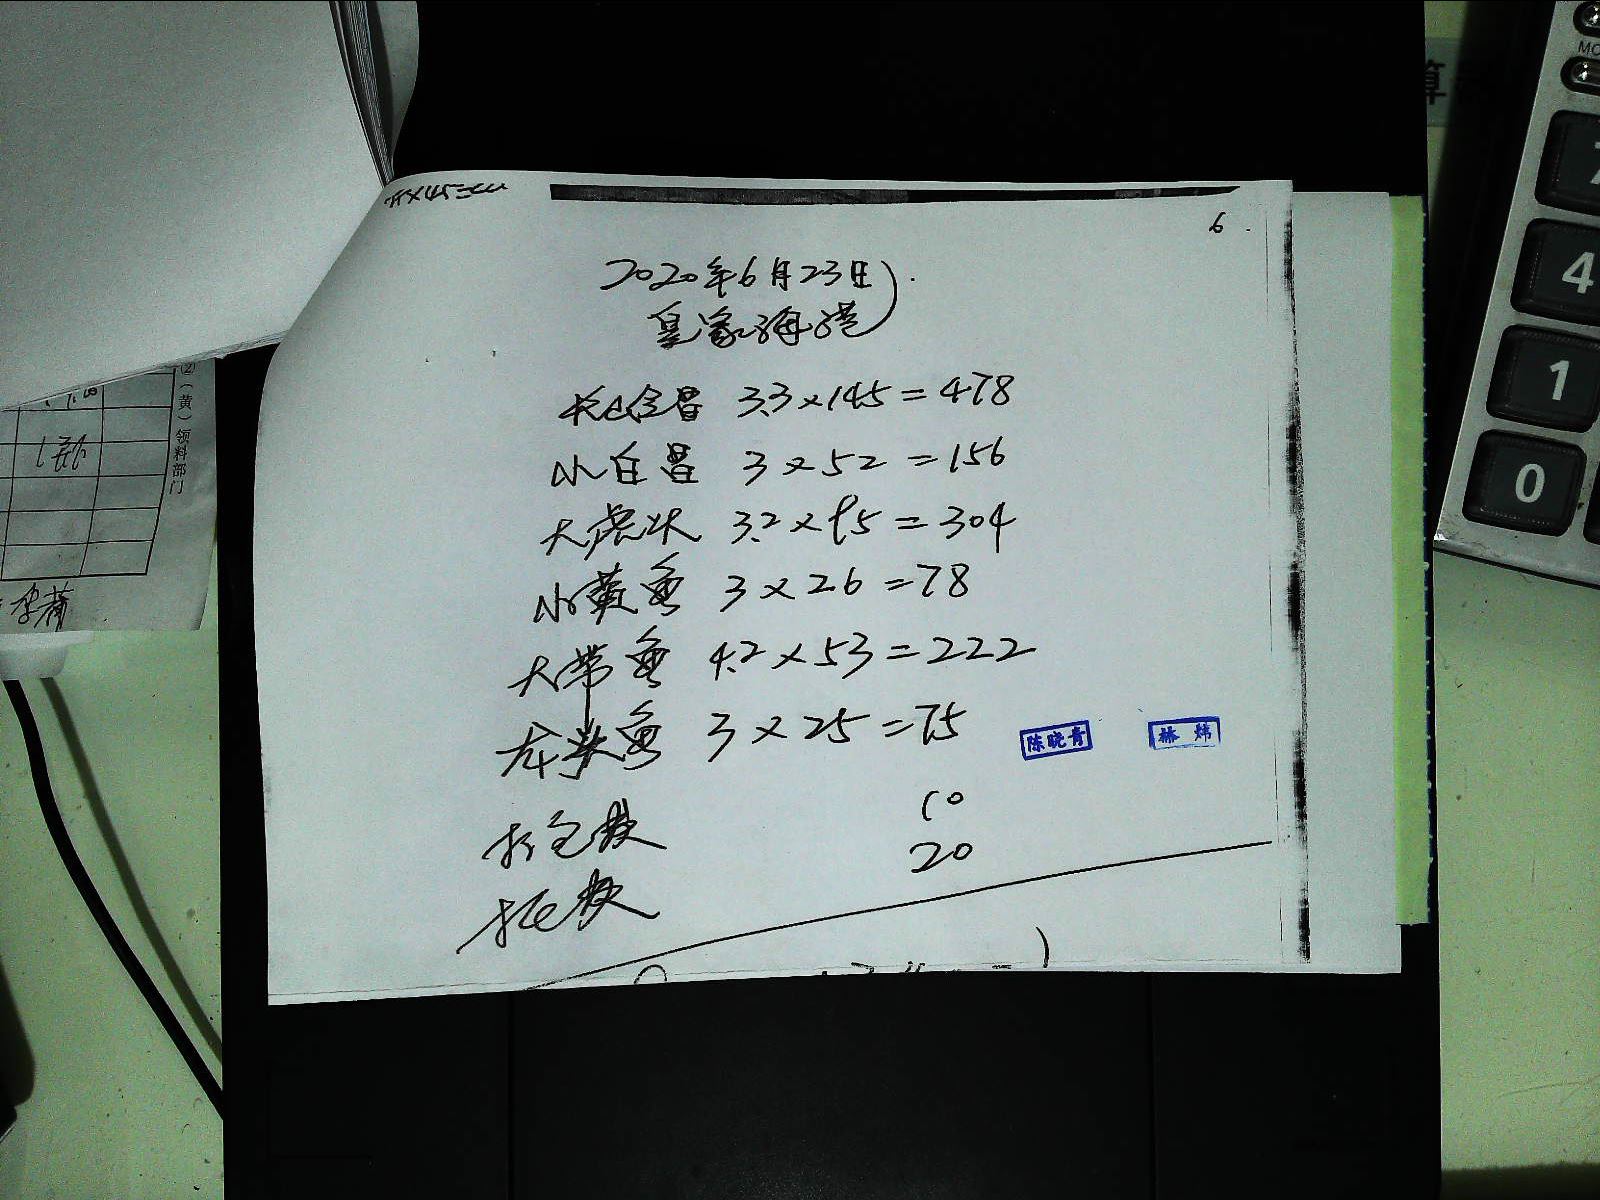 6
2020年6月23日
皇家海港
3.3×145=478
小白昌 3×52=156
大虎 3.2×95=304
小黄鱼 3×26=78
大带鱼 4.2×53=222
龙头鱼 3×25=75
陈晓青
林炜
打包费 10
20
②(黄)领料部门
算
7
4
1
0